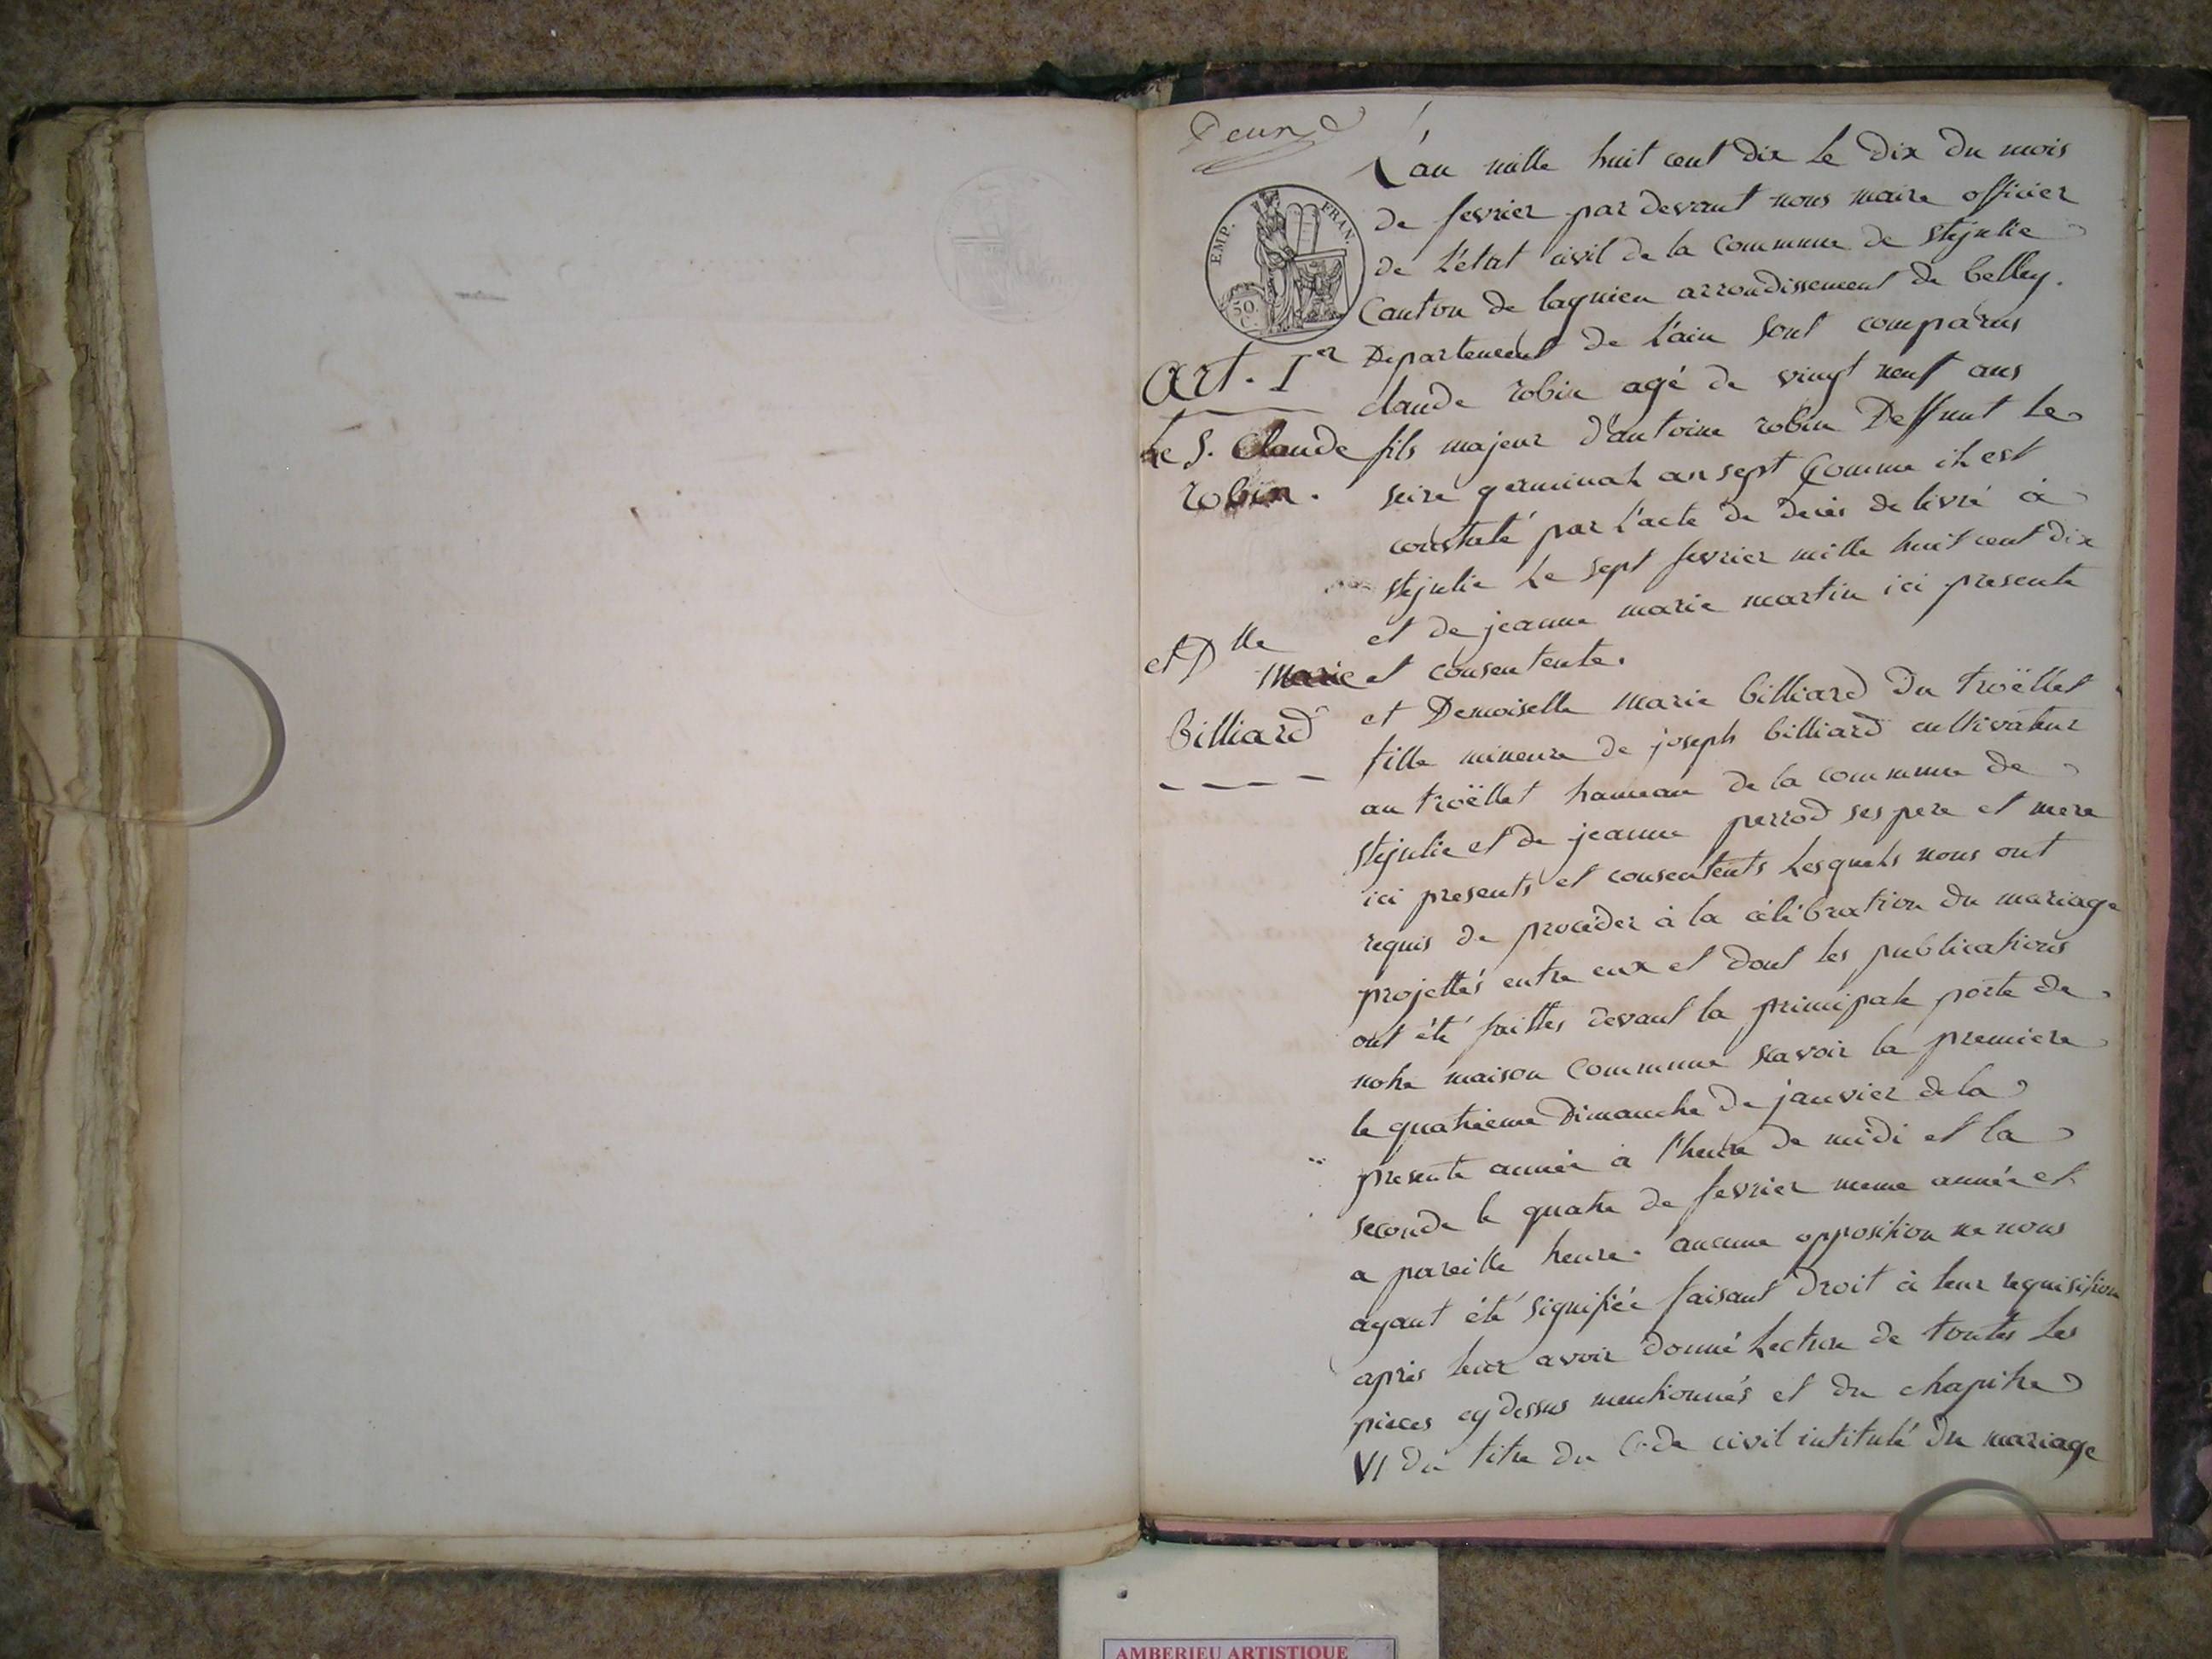 Deux
EMP. FRAN.
50
C.
L'an mille huit cent dix le dix du mois
de fevrier par devant nous maire officier
de l'état civil de la Commune de Stejulie
Canton de lagnieu arrondissement de belley.
Departement de l'ain sont comparus
claude robin agé de vingt neuf ans
fils majeur d'antoine robin Deffunt le
seize germinal an sept Comme il est
constaté par l'acte de decès delivré à
stejulie le sept fevrier mille huit cent dix
et de jeanne marie martin ici presente
et consentente.
et Demoiselle marie billiard du troëllet
fille mineure de joseph billiard cultivateur
au troëllet hameau de la commune de
stejulie et de jeanne perrod ses pere et mere
ici presents et consentents lesquels nous ont
requis de procéder à la célébration du mariage
projettés entre eux et dont les publications
ont été faittes devant la principale porte de
notre maison Commune savoir la premiere
le quatrieme Dimanche de janvier de la
presente année à l'heure de midi et la
seconde le quatre de fevrier meme année et
a pareille heure. aucune opposition ne nous
ayant été signifiée faisant droit à leur requisition
après leur avoir donné lecture de toutes les
pièces cy dessus mentionnés et du chapitre
VI du titre du Code civil intitulé du mariage
Art. 1er
Le S. Claude
robin.
et Dlle
Marie
billiard
AMBERIEU ARTISTIQUE